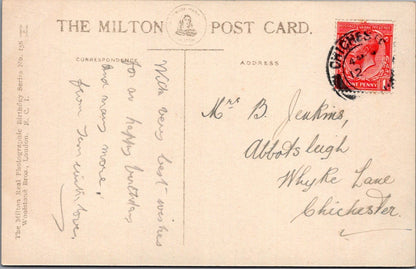 THE MILTON POST CARD.
CORRESPONDENCE
ADDRESS
CHICHESTER
12
ONE PENNY
With very best wishes
for a happy birthday
and many more,
from Jim with love.
Mrs B. Jenkins,
Abbotsleigh
Whyke Lane
Chichester.
The Milton Real Photographic Birthday Series No. 158
Woolstone Bros., London, E.C.1.